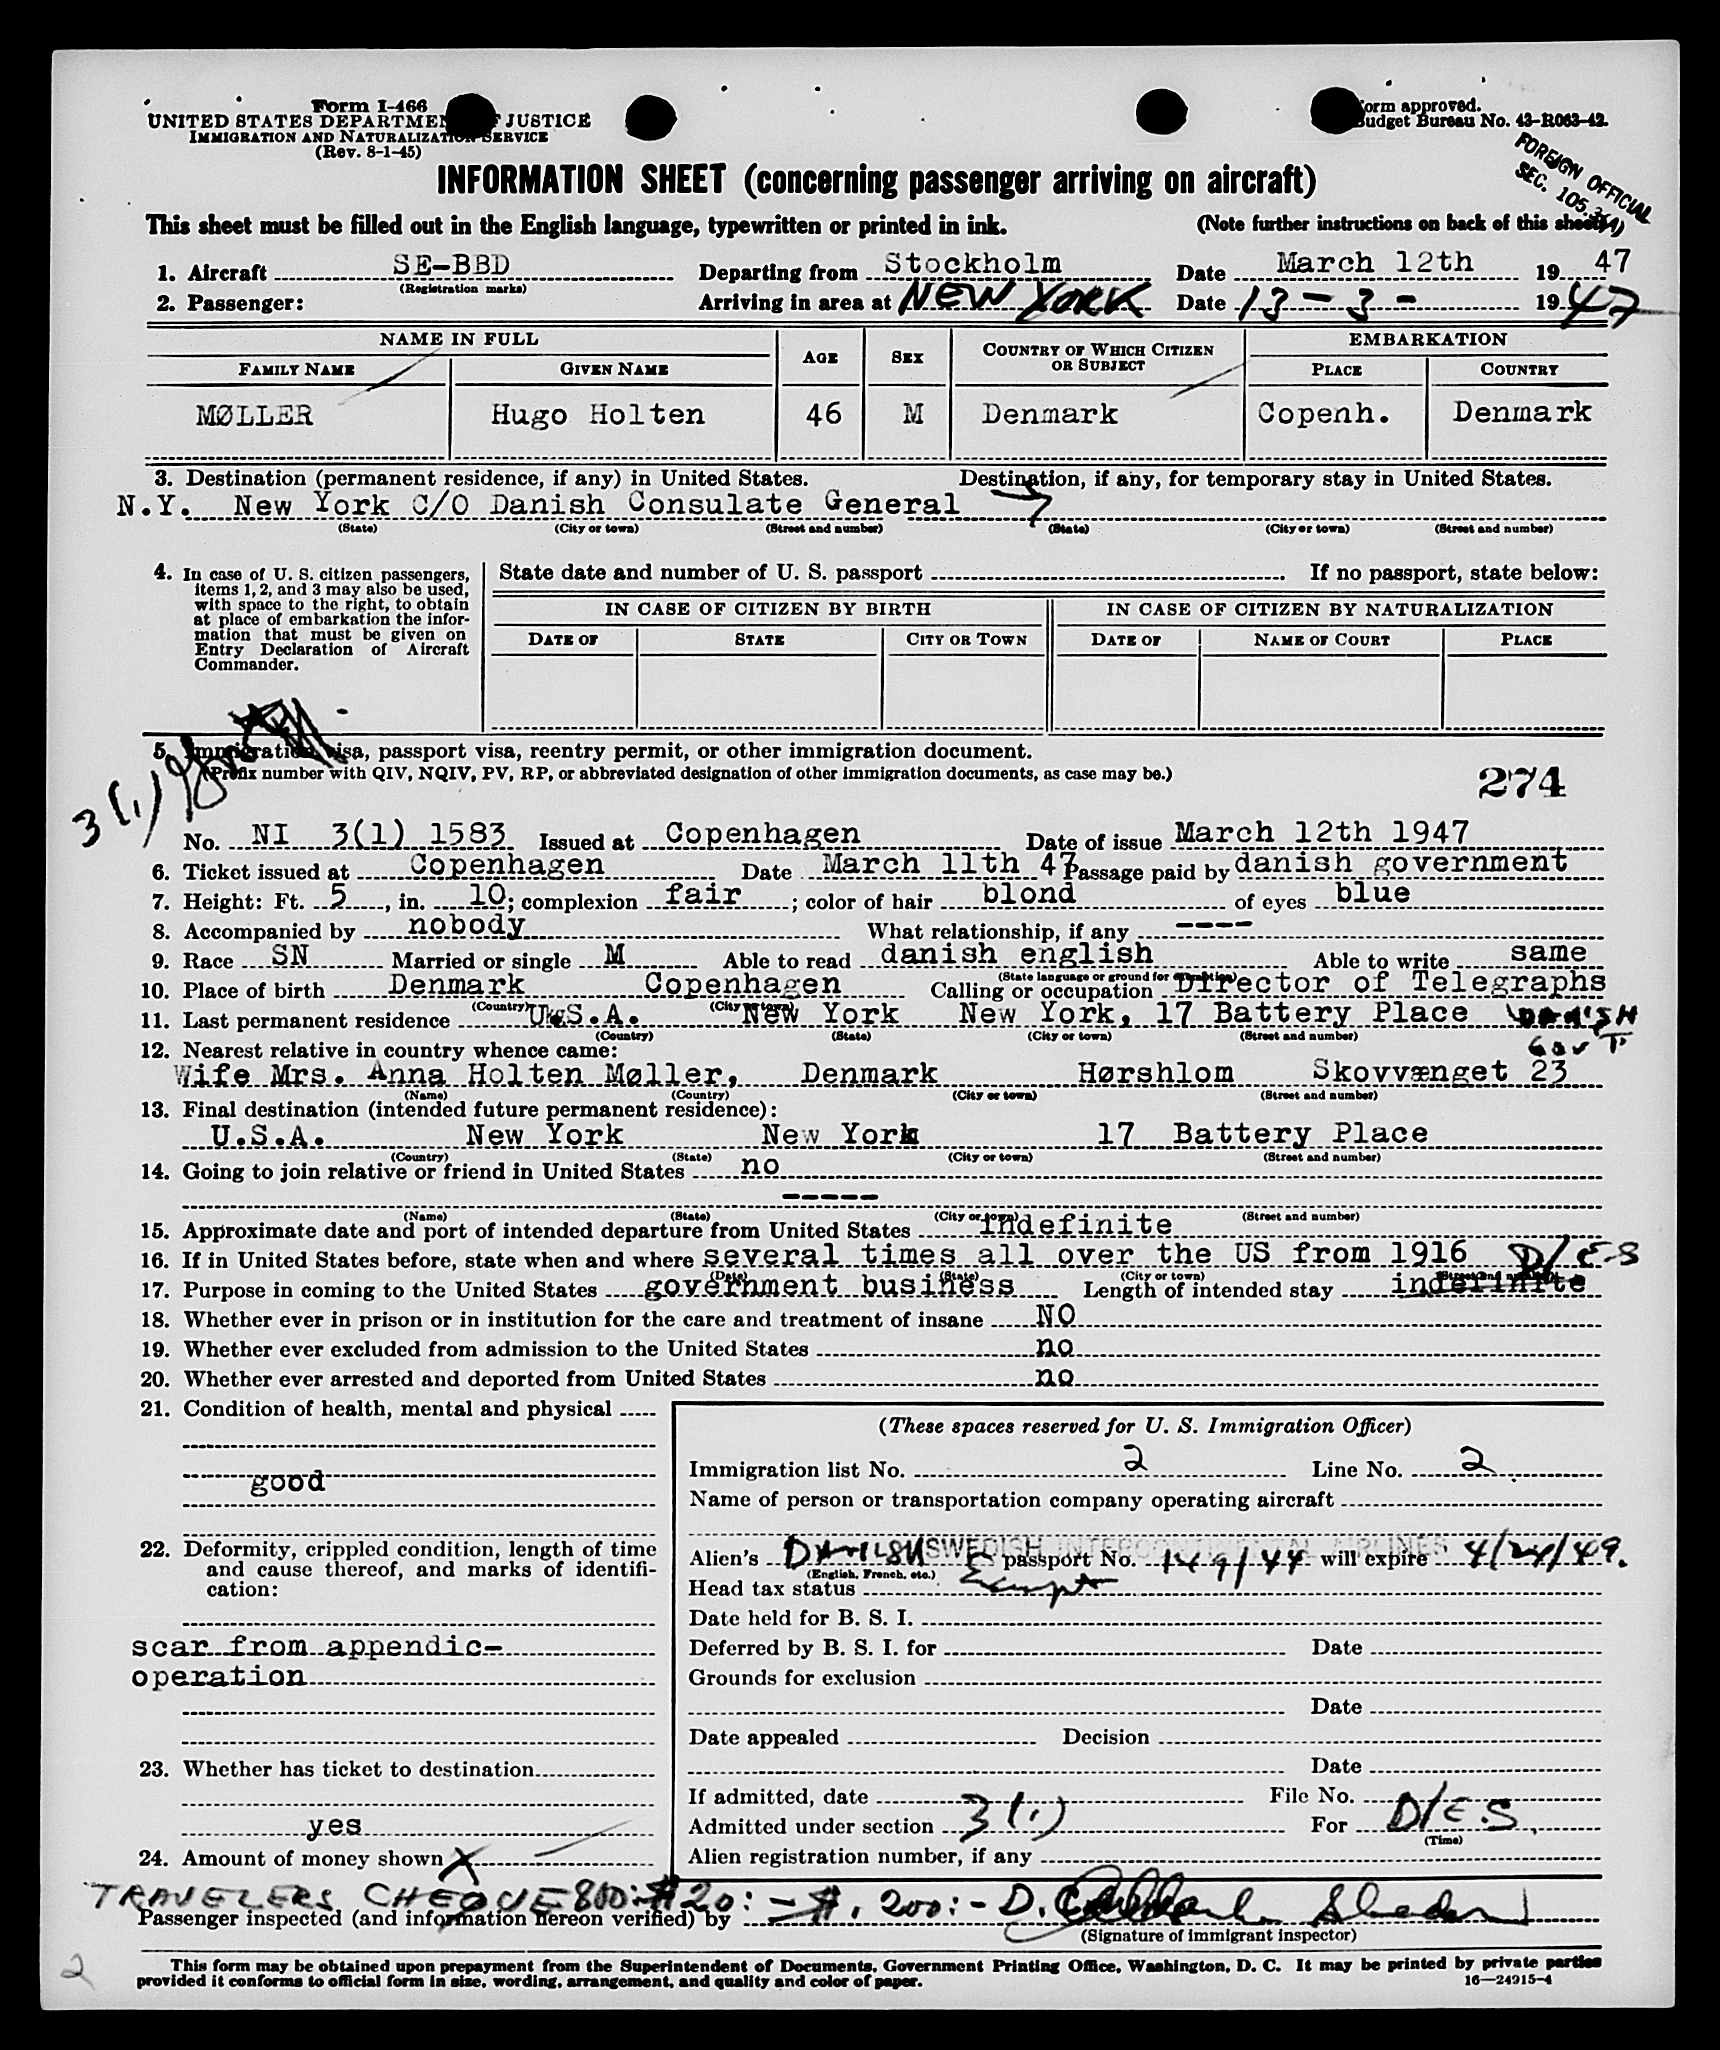 Form I-466
UNITED STATES DEPARTMENT OF JUSTICE
IMMIGRATION AND NATURALIZATION SERVICE
(Rev. 8-1-45)
Form approved.
Budget Bureau No. 43-R063-42.
FOREIGN OFFICIAL
SEC. 105.3(A)
INFORMATION SHEET (concerning passenger arriving on aircraft)
This sheet must be filled out in the English language, typewritten or printed in ink. (Note further instructions on back of this sheet.)
1. Aircraft SE-BBD Departing from Stockholm Date March 12th 19 47
(Registration marks)
2. Passenger: Arriving in area at NEW YORK Date 13-3- 19 47
NAME IN FULL AGE SEX COUNTRY OF WHICH CITIZEN OR SUBJECT EMBARKATION
FAMILY NAME GIVEN NAME PLACE COUNTRY
MØLLER Hugo Holten 46 M Denmark Copenh. Denmark
3. Destination (permanent residence, if any) in United States. Destination, if any, for temporary stay in United States.
N.Y. New York C/O Danish Consulate General
(State) (City or town) (Street and number) (State) (City or town) (Street and number)
4. In case of U. S. citizen passengers, items 1, 2, and 3 may also be used, with space to the right, to obtain at place of embarkation the information that must be given on Entry Declaration of Aircraft Commander.
State date and number of U. S. passport . If no passport, state below:
IN CASE OF CITIZEN BY BIRTH IN CASE OF CITIZEN BY NATURALIZATION
DATE OF STATE CITY OR TOWN DATE OF NAME OF COURT PLACE
5. Immigration visa, passport visa, reentry permit, or other immigration document.
(Prefix number with QIV, NQIV, PV, RP, or abbreviated designation of other immigration documents, as case may be.)
274
3(1)
No. NI 3(1) 1583 Issued at Copenhagen Date of issue March 12th 1947
6. Ticket issued at Copenhagen Date March 11th 47 Passage paid by danish government
7. Height: Ft. 5, in. 10; complexion fair; color of hair blond of eyes blue
8. Accompanied by nobody What relationship, if any ----
9. Race SN Married or single M Able to read danish english Able to write same
(State language or ground for exemption)
10. Place of birth Denmark Copenhagen Calling or occupation Director of Telegraphs
(Country) (City or town)
11. Last permanent residence U.S.A. New York New York, 17 Battery Place DANISH
GOV'T
(Country) (State) (City or town) (Street and number)
12. Nearest relative in country whence came:
Wife Mrs. Anna Holten Møller, Denmark Hørshlom Skovvænget 23
(Name) (Country) (City or town) (Street and number)
13. Final destination (intended future permanent residence):
U.S.A. New York New York 17 Battery Place
(Country) (State) (City or town) (Street and number)
14. Going to join relative or friend in United States no
-----
(Name) (State) (City or town) (Street and number)
15. Approximate date and port of intended departure from United States indefinite
16. If in United States before, state when and where several times all over the US from 1916 D/E-S
(Date) (State) (City or town) (Street and number)
17. Purpose in coming to the United States government business Length of intended stay indefinite
18. Whether ever in prison or in institution for the care and treatment of insane NO
19. Whether ever excluded from admission to the United States no
20. Whether ever arrested and deported from United States no
21. Condition of health, mental and physical
good
22. Deformity, crippled condition, length of time and cause thereof, and marks of identification:
scar from appendic-
operation
23. Whether has ticket to destination
yes
24. Amount of money shown X
(These spaces reserved for U. S. Immigration Officer)
Immigration list No. 2 Line No. 2
Name of person or transportation company operating aircraft
SWEDISH INTERCONTINENTAL AIRLINES
Alien's DANISH passport No. 149/44 will expire 4/24/49.
(English, French, etc.)
Head tax status Exempt
Date held for B. S. I.
Deferred by B. S. I. for Date
Grounds for exclusion
Date
Date appealed Decision
Date
If admitted, date File No.
Admitted under section 3(1) For D/E.S.
(Time)
Alien registration number, if any
TRAVELERS CHEQUE 800:- $20:- $. 200:-
Passenger inspected (and information hereon verified) by
(Signature of immigrant inspector)
2
This form may be obtained upon prepayment from the Superintendent of Documents, Government Printing Office, Washington, D. C. It may be printed by private parties
provided it conforms to official form in size, wording, arrangement, and quality and color of paper. 16—24915-4